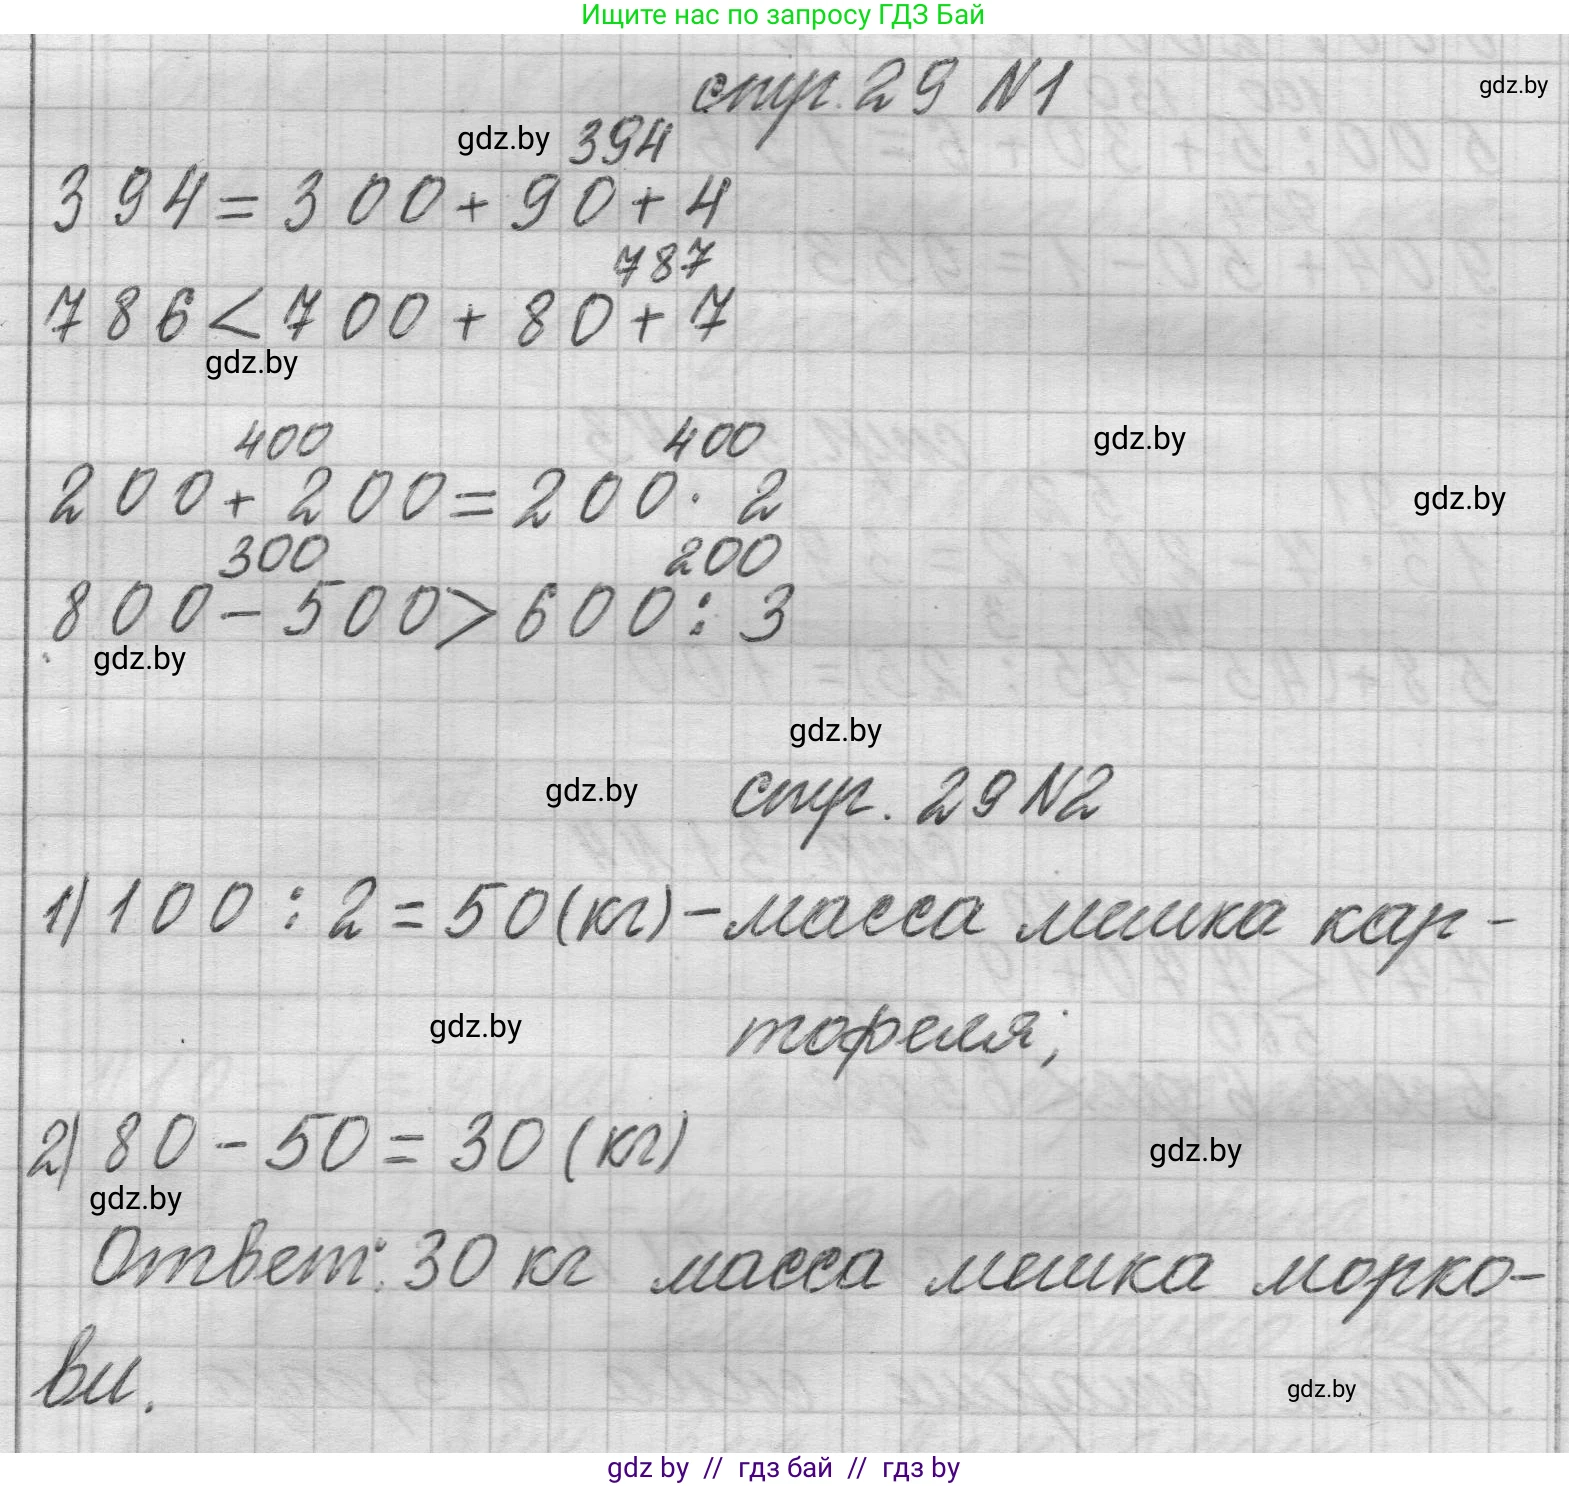 Ищите нас по запросу ГДЗ Бай
стр. 29 N1
gdz.by
gdz.by 394
394=300+90+4
787
786<700+80+7
gdz.by
400 400
gdz.by
200+200=200·2
gdz.by
300 200
800-500>600:3
gdz.by
gdz.by
gdz.by
стр. 29 N2
1) 100:2=50(кг)-масса мешка кар-
тофеля;
gdz.by
2) 80-50=30(кг)
gdz.by
gdz.by
Ответ: 30 кг масса мешка морко-
ви.
gdz.by
gdz by // гдз бай // гдз by